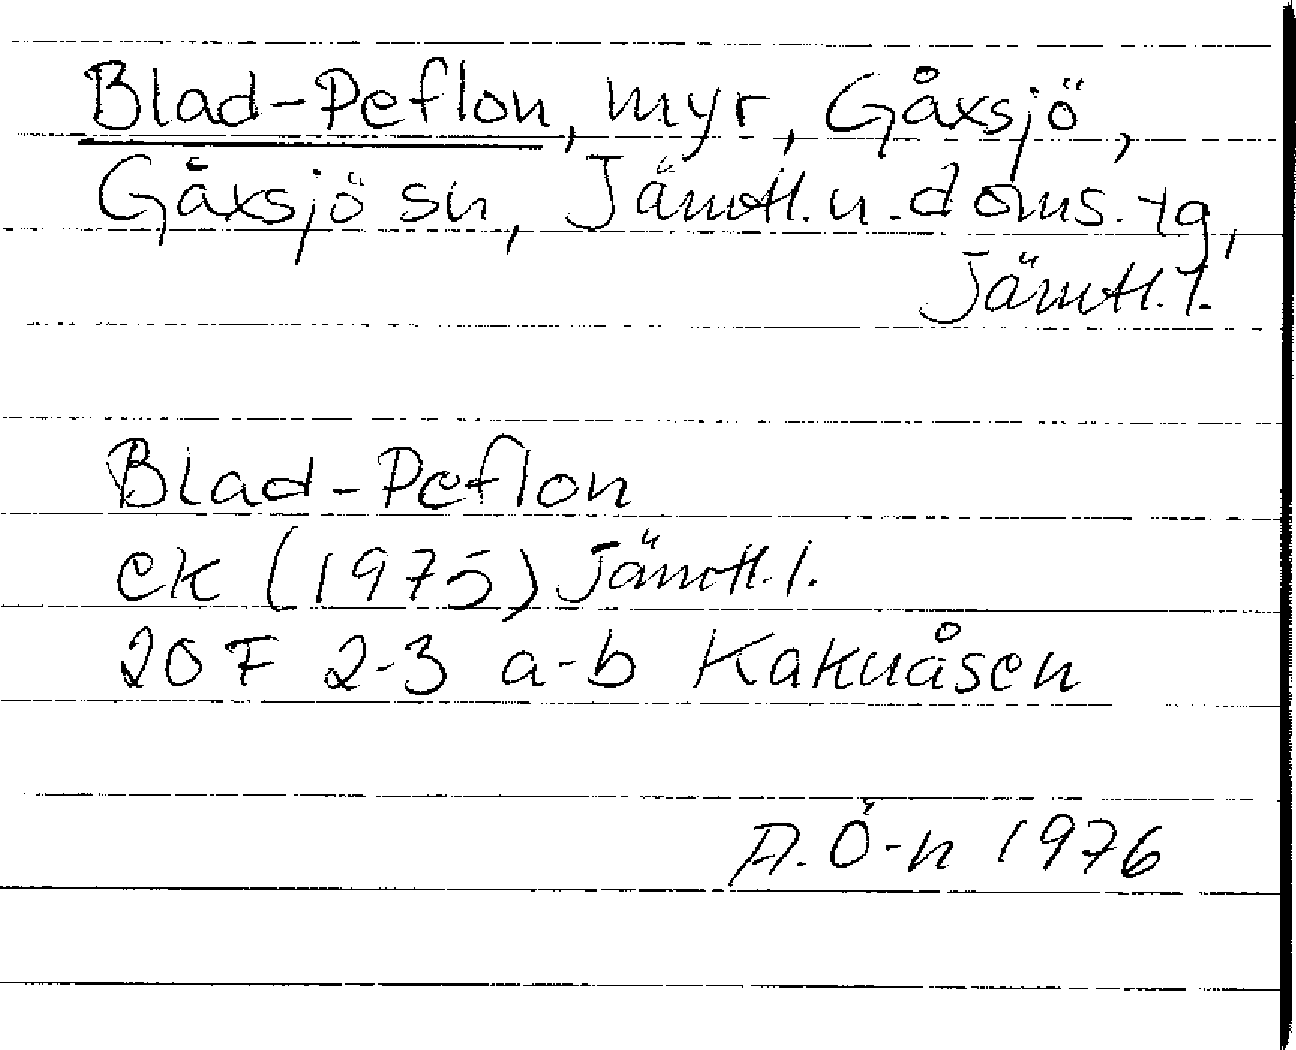 Blad-Peflon, myr, Gåxsjö,
Gåxsjö sn, Jämtl. n. doms. tg,
Jämtl. l.
Blad-Peflon
ek (1975) Jämtl. l.
20F 2-3 a-b Kakuåsen
A. Ö-n 1976